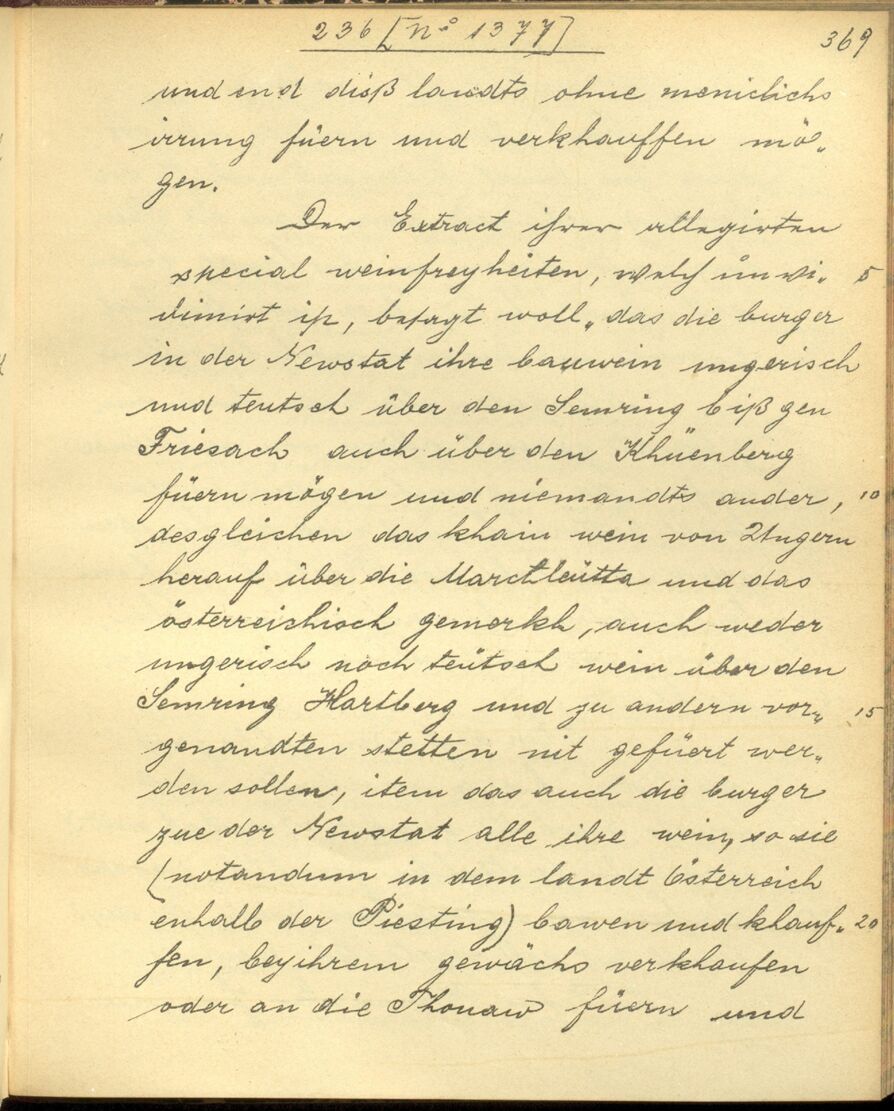 236 [Nº 1377]
369
und end diß landts ohne meniclichs
irrung füern und verkhauffen mö„
gen.
Der Extract ihrer allegirten
special weinfreyheiten, welch unvi„ 5
dimirt ist, besagt woll„ das die burger
in der Newstat ihre bauwein ungerisch
und teutsch über den Semring biß gen
Friesach auch über den Khüenberg
füern mögen und niemandts ander, 10
desgleichen das khain wein von Ungern
herauf über die Marctleütta und das
österreichisch gemerkh, auch weder
ungerisch noch teütsch wein über den
Semring Hartberg und zu andern vor„ 15
genandten stetten nit gefüert wer„
den sollen, item das auch die burger
zue der Newstat alle ihre wein, so sie
(notandum in dem landt Österreich
enhalb der Piesting) bawen und khauf„ 20
fen, bey ihrem gewächs verkhaufen
oder an die Thonaw füern und